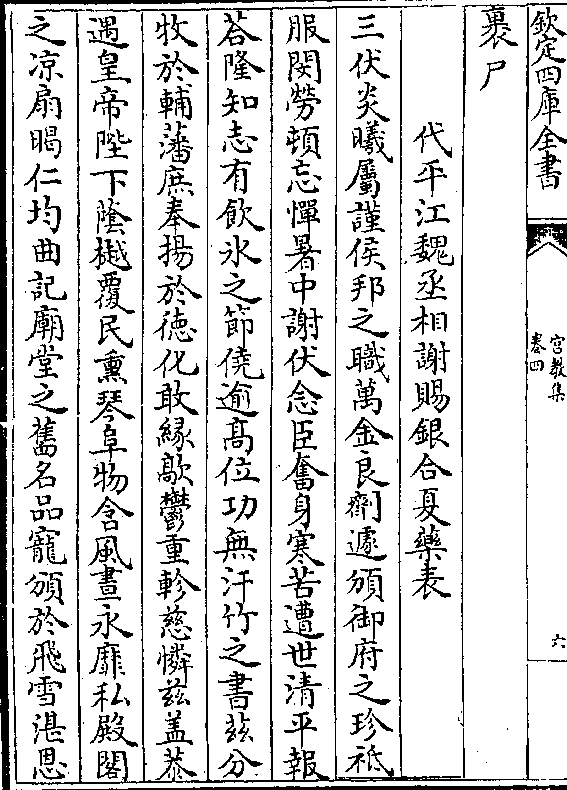 欽定四庫全書
宮教集
卷四
六
裹尸
代平江魏丞相謝賜銀合夏藥表
三伏炎曦屬謹侯邦之職萬金良劑遽頒御府之珍祗
服閔勞頓忘憚暑中謝伏念臣奮身寒苦遭世清平報
荅隆知志有飲氷之節僥逾髙位功無汗竹之書兹分
牧於輔藩庶奉揚於徳化敢緣歊鬱重軫慈憐兹盖恭
遇皇帝陛下蔭樾覆民熏琴阜物含風晝永靡私殿閣
之凉扇暍仁均曲記廟堂之舊名品寵頒於飛雪湛恩